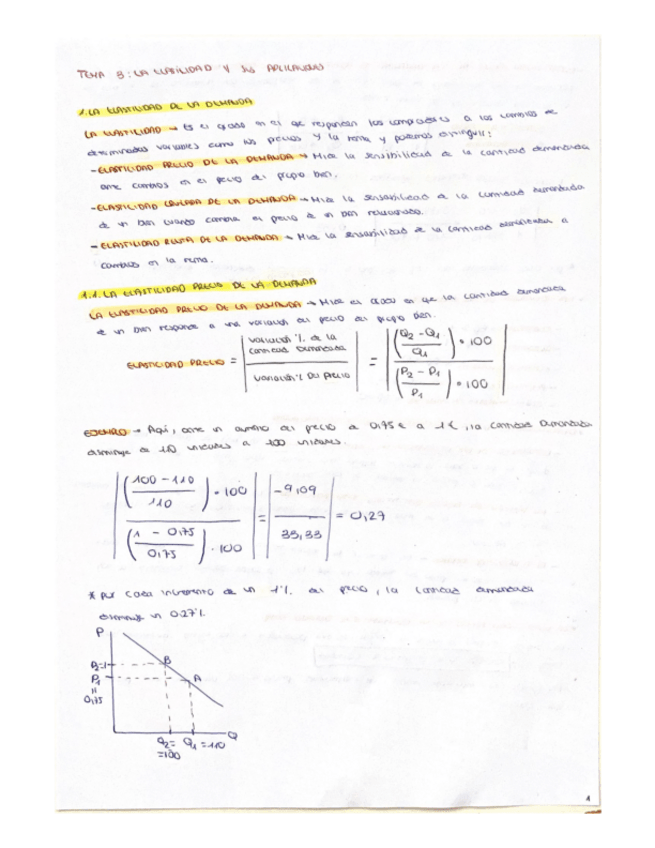 TEMA 3: LA ELASTICIDAD Y SUS APLICACIONES
1. LA ELASTICIDAD DE LA DEMANDA
LA ELASTICIDAD → Es el grado en el que responden los compradores a los cambios de
determinadas variables como los precios y la renta y podemos distinguir:
- ELASTICIDAD PRECIO DE LA DEMANDA → Mide la sensibilidad de la cantidad demandada
ante cambios en el precio del propio bien.
- ELASTICIDAD CRUZADA DE LA DEMANDA → Mide la sensibilidad de la cantidad demandada
de un bien cuando cambia el precio de un bien relacionado.
- ELASTICIDAD RENTA DE LA DEMANDA → Mide la sensibilidad de la cantidad demandada a
cambios en la renta.
1.1. LA ELASTICIDAD PRECIO DE LA DEMANDA
LA ELASTICIDAD PRECIO DE LA DEMANDA → Mide el grado en que la cantidad demandada
de un bien responde a una variación del precio del propio bien.
ELASTICIDAD PRECIO = | variación % de la cantidad demandada / variación % del precio | = | ((Q2 - Q1) / Q1) · 100 / ((P2 - P1) / P1) · 100 |
EJEMPLO → Aquí, ante un aumento del precio de 0,75€ a 1€, la cantidad demandada
disminuye de 110 unidades a 100 unidades.
| ((100 - 110) / 110) · 100 / ((1 - 0,75) / 0,75) · 100 | = | -9,09 / 33,33 | = 0,27
* Por cada incremento de un 1% del precio, la cantidad demandada
disminuye un 0.27%.
P
P2=1
B
P1
A
=
0,75
Q
Q2= Q1=110
=100
1